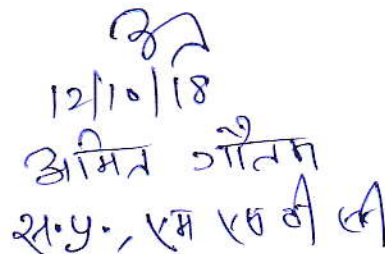 12/10/18
अमित गौतम
स.प्र., एम एस वी सी